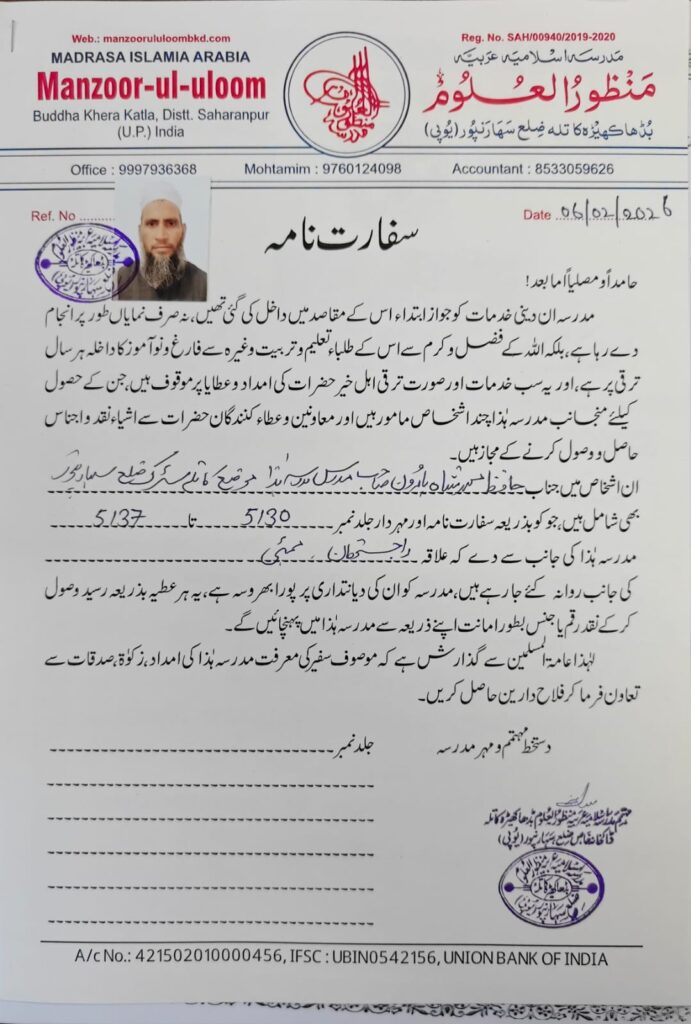 Web.: manzoorululoombkd.com
Reg. No. SAH/00940/2019-2020
MADRASA ISLAMIA ARABIA
مدرسہ اسلامیہ عربیہ
Manzoor-ul-uloom
منظورُالعلوم
Buddha Khera Katla, Distt. Saharanpur
(U.P.) India
بُڈھاکھیڑہ کاتلہ ضلع سہارنپور (یوپی)
Office : 9997936368 Mohtamim : 9760124098 Accountant : 8533059626
Ref. No
Date 06/02/2026
سفارت نامہ
حامداً و مصلیاً اما بعد!
مدرسہ ان دینی خدمات کو جواز ابتداء اس کے مقاصد میں داخل کی گئی تھیں، نہ صرف نمایاں طور پر انجام
دے رہا ہے، بلکہ اللہ کے فضل و کرم سے اس کے طلباء تعلیم و تربیت وغیرہ سے فارغ و نوآموز کا داخلہ ہر سال
ترقی پر ہے، اور یہ سب خدمات اور صورت ترقی اہل خیر حضرات کی امداد و عطایا پر موقوف ہیں، جن کے حصول
کیلئے منجانب مدرسہ ہٰذا چند اشخاص مامور ہیں اور معاونین و عطاء کنندگان حضرات سے اشیاء نقد و اجناس
حاصل و وصول کرنے کے مجاز ہیں۔
ان اشخاص میں جناب حافظ ہارون صاحب مدرس مدرسہ ہٰذا موضع ضلع سہارنپور
بھی شامل ہیں، جو کو بذریعہ سفارت نامہ اور مہر دار جلد نمبر 5130 تا 5137
مدرسہ ہٰذا کی جانب سے دے کہ علاقہ راجستھان، ممبئی
کی جانب روانہ کئے جارہے ہیں، مدرسہ کو ان کی دیانتداری پر پورا بھروسہ ہے، یہ ہر عطیہ بذریعہ رسید وصول
کرکے نقد رقم یا جنس بطور امانت اپنے ذریعہ سے مدرسہ ہٰذا میں پہنچائیں گے۔
لہٰذا عامۃ المسلمین سے گذارش ہے کہ موصوف سفیر کی معرفت مدرسہ ہٰذا کی امداد، زکوٰۃ، صدقات سے
تعاون فرما کر فلاح دارین حاصل کریں۔
دستخط مہتمم و مہر مدرسہ
جلد نمبر
مہتمم مدرسہ اسلامیہ عربیہ منظورالعلوم بڈھا کھیڑہ کاتلہ
ڈاکخانہ خاص ضلع سہارنپور (یوپی)
A/c No.: 421502010000456, IFSC : UBIN0542156, UNION BANK OF INDIA